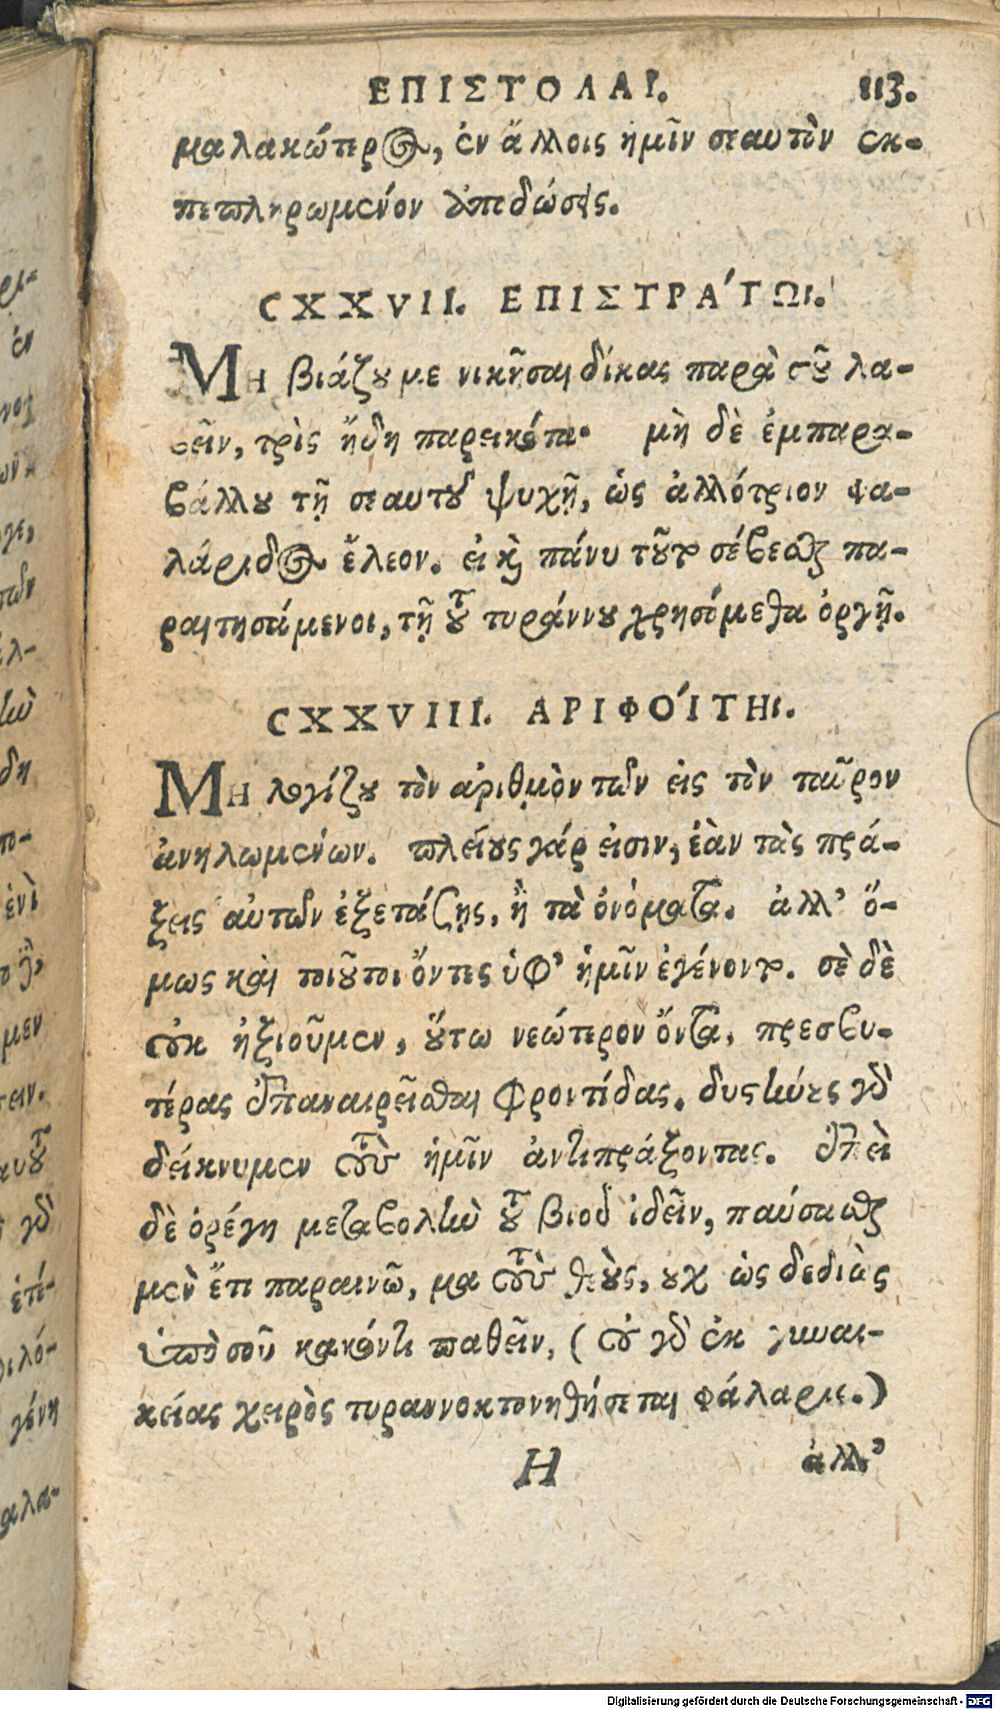 ΕΠΙΣΤΟΛΑΙ. 113.
μαλακώτερος, ἐν ἄλλοις ἡμῖν σεαυτὸν ἐκ-
πεπληρωμένον ἀπεδώσεις.
CXXVII. ΕΠΙΣΤΡΑ´ΤΩΙ.
Μὴ βιάζου με νικῆσαι δίκας παρὰ σοῦ λα-
βεῖν, τρὶς ἤδη παρεικότα· μὴ δὲ ἐμπαρα-
βάλλου τῇ σεαυτοῦ ψυχῇ, ὡς ἀλλότριον Φα-
λάριδος ἔλεον. εἰ καὶ πάνυ τοῦτο σέβεσθαι πα-
ραιτησάμενοι, τῇ τοῦ τυράννου χρησόμεθα ὀργῇ.
CXXVIII. ΑΡΙΦΟΊΤΗΙ.
Μὴ λογίζου τὸν ἀριθμὸν τῶν εἰς τὸν ταῦρον
ἀνηλωμένων. πλείους γάρ εἰσιν, ἐὰν τὰς πρά-
ξεις αὐτῶν ἐξετάζῃς, ἢ τὰ ὀνόματα. ἀλλ' ὅ-
μως καὶ τοιοῦτοι ὄντες ὑφ' ἡμῖν ἐγένοντο. σὲ δὲ
οὐκ ἠξιοῦμεν, οὕτω νεώτερον ὄντα, πρεσβυ-
τέρας ἐπαναιρεῖσθαι φροντίδας. δυστυχεῖς γὰρ
δείκνυμεν τοὺς ἡμῖν ἀντιπράξοντας. ἐπεὶ
δὲ ὀρέγῃ μεταβολὴν τοῦ βίου ἰδεῖν, παύσασθαι
μὲν ἔτι παραινῶ, μα τοὺς θεοὺς, οὐχ ὡς δεδιὼς
ὑπὸ σοῦ κακόν τι παθεῖν, (οὐ γὰρ ἐκ γυναι-
κείας χειρὸς τυραννοκτονηθήσεται Φάλαρις.)
H ἀλλ'